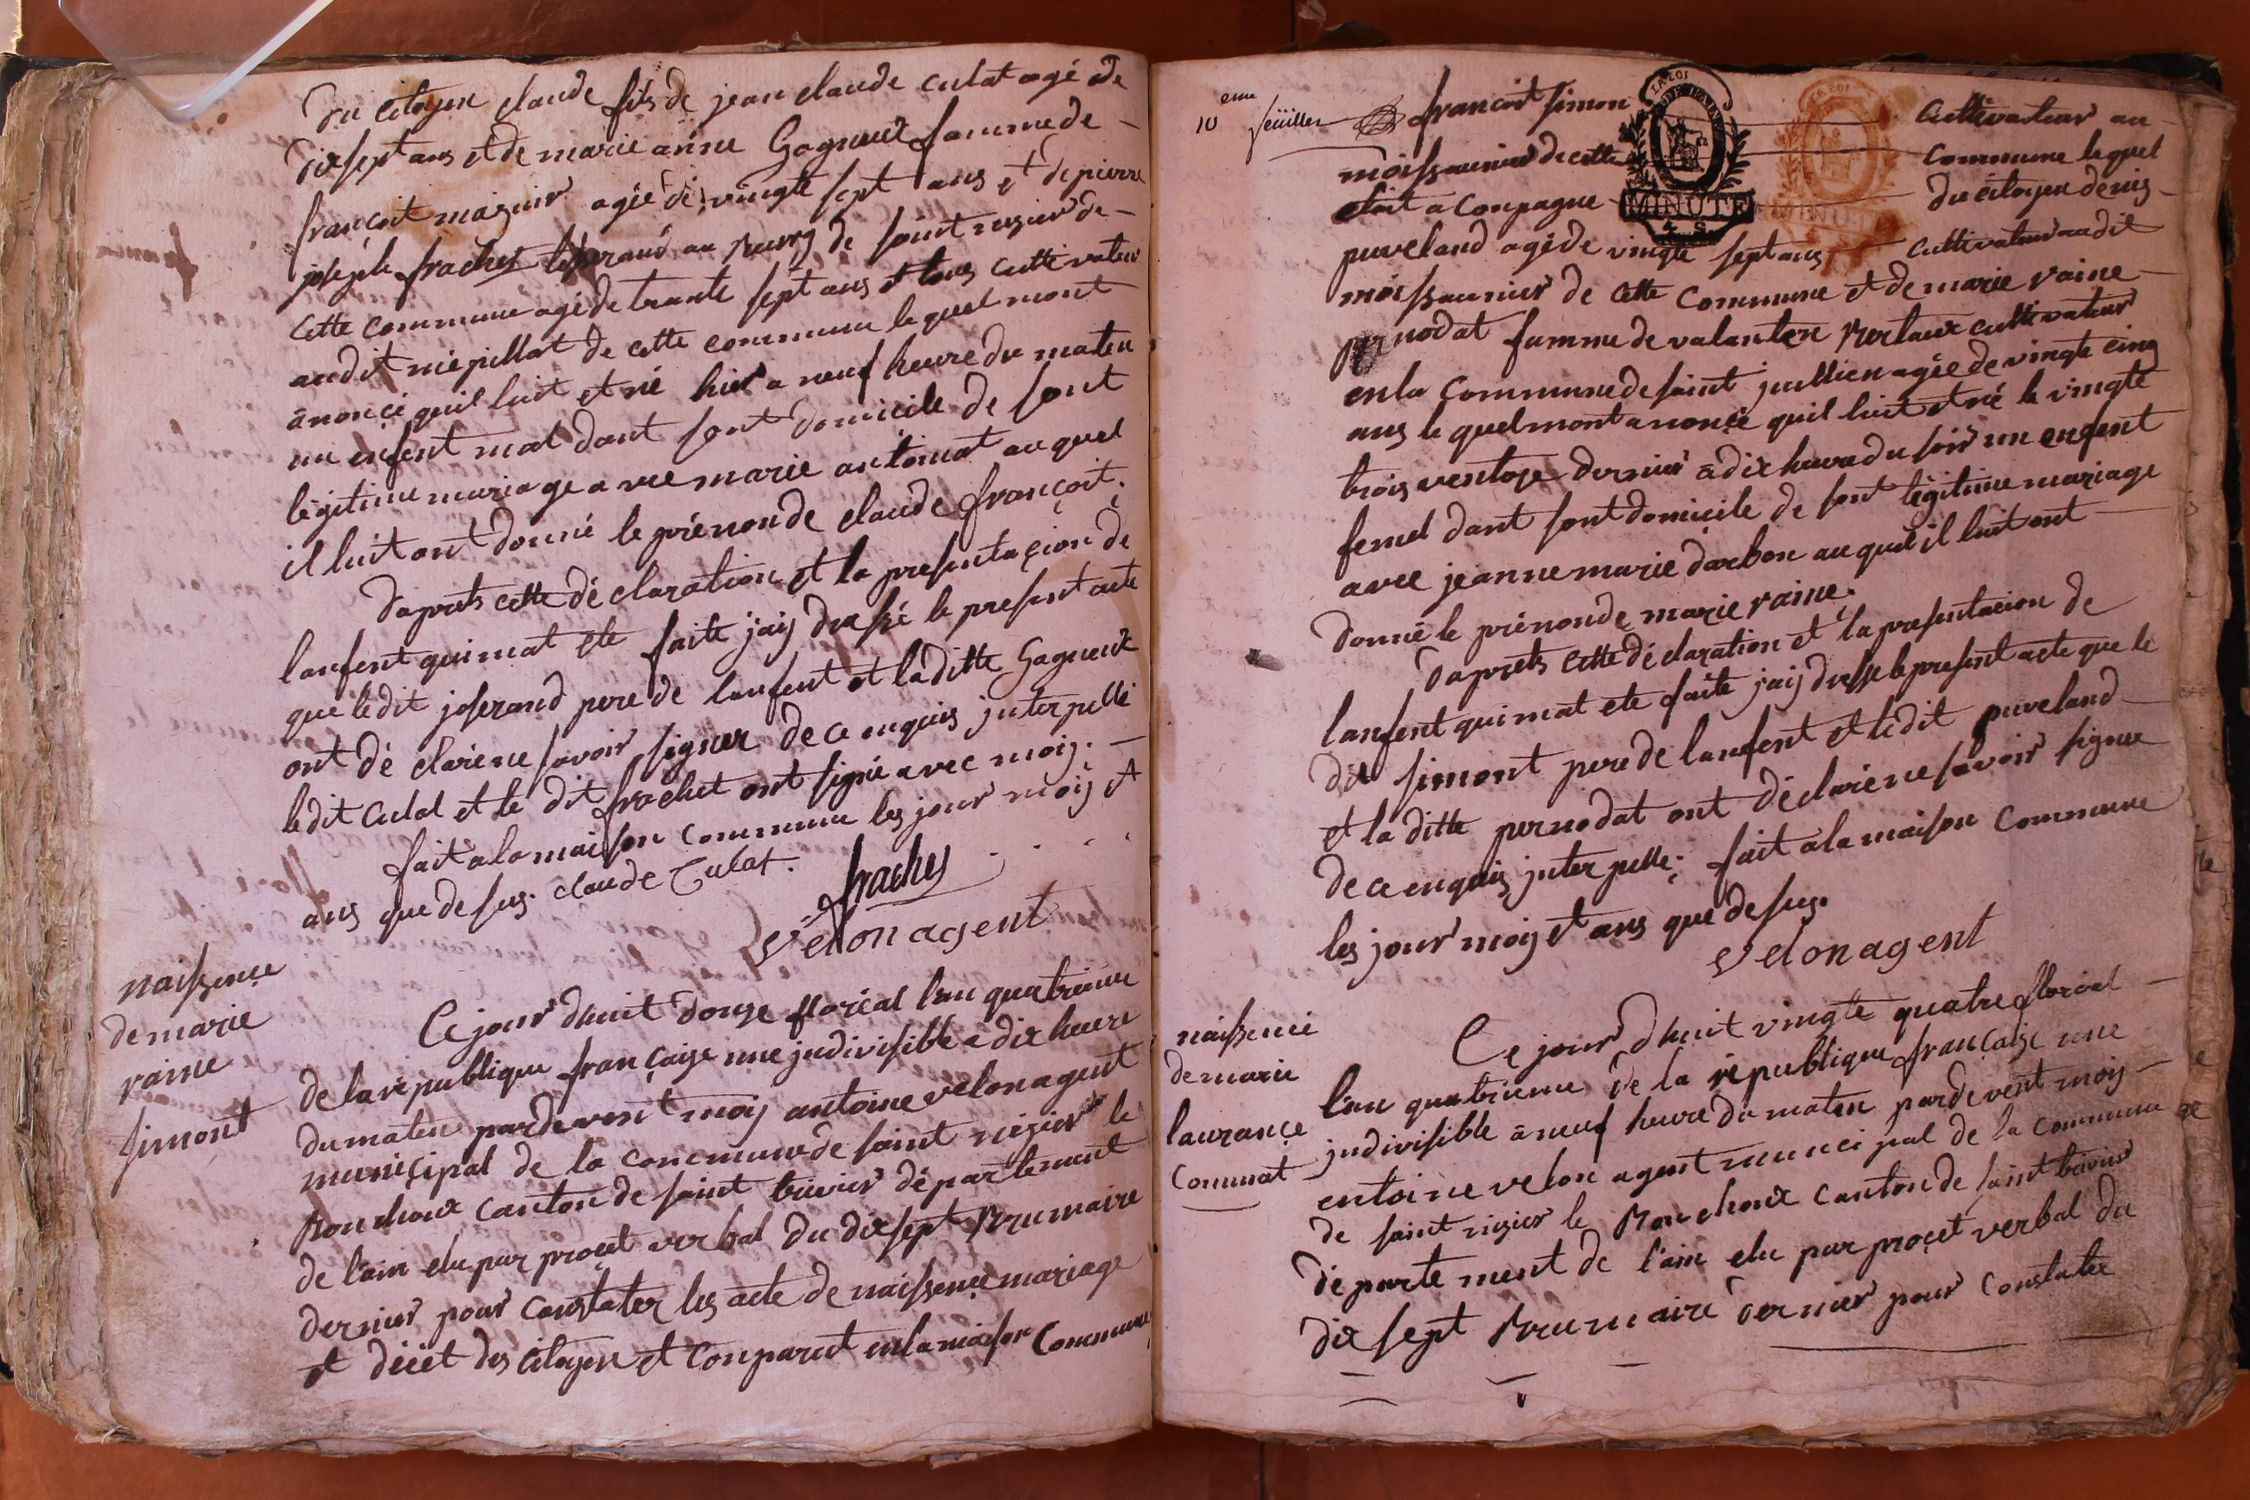 du citoyen claude fils de jean claude culat agé de
dix sept ans et de marie anne Gagneux famme de
françoit maguir agée de vingte sept ans et de pierre
joseph frachet au Bourg de saint nizier de
cette commune agé de trante sept ans et tous cultivateur
audit mépillat de cette commune le quel mont
anoncé quil luit et né hier a neuf heure du maten
un enfent mal dant sont domicile de sont
légitime mariage avec marie antoinat au quel
il luit ont donné le prénon de claude françoit.
daprets cette dé claration et la presentaçion de
lanfent qui mat ete faite jaij dressé le present acte
que ledit joserand pere de lanfent et laditte Gagneux
ont dé claré ne savoir signer de ce enquis juterpellé
ledit Culat et le dit frachet ont signé avec moij.
fait a la maison commune les jour moij et
ans que desus. claude Culat.
frachet
Velon agent
naissence
de marie
raine
simont
Ce jour dhuit douze floréal lan quatrieme
de la république françaize une judivisible a dix heure
du maten pardevent moij antoine velon agent
municipal de la concmune de saint nizier le
Bouchoux canton de saint trivier département
de l'ain elu par proçet verbal du dix sept Brumaire
dernier pour constater les acte de naissençe mariage
et décet des citoyen et conparut enla maison commune
10 eme feüillet
françoit simon cultivateur au
moissonnier de cette commune le quel
etoit a conpagne du citoyen denis
LA LOI
MINUTE
4 S
puveland agé de vingte sept ans cultivateur audit
moissonnier de cette commune et de marie raine
pernodat famme de valanten Bertaux cultivateur
en la commune de saint jullien agée de vingte cinq
ans le quel mont anoncé quil luit et né le vingte
trois ventose dernier a dix heure du soir un enfent
femel dant sont domicile de sont légitime mariage
avec jeanne marie darbon au quel il luit ont
donné le prénon de marie raine.
daprets cette déclaration et la presentacion de
lanfent qui mat ete faite jaij dresse le present acte que le
dit simont pere de lanfent et ledit puveland
et la ditte pernodat ont déclaré ne savoir signer
de ce enquis juterpellé. fait a la maison commune
les jour moij et ans que desus.
Velon agent
naissence
de marie
laurançe
Communat
Ce jour dhuit vingte quatre floréal
lan quatrieme de la république françaize une
judivisible a neuf heure du maten pardevent moij
entoine velon agent municipal de la commune
de saint nizier le Bouchoux canton de saint trivier
département de l'ain elu par proçet verbal du
dix sept Brumaire dernier pour constater